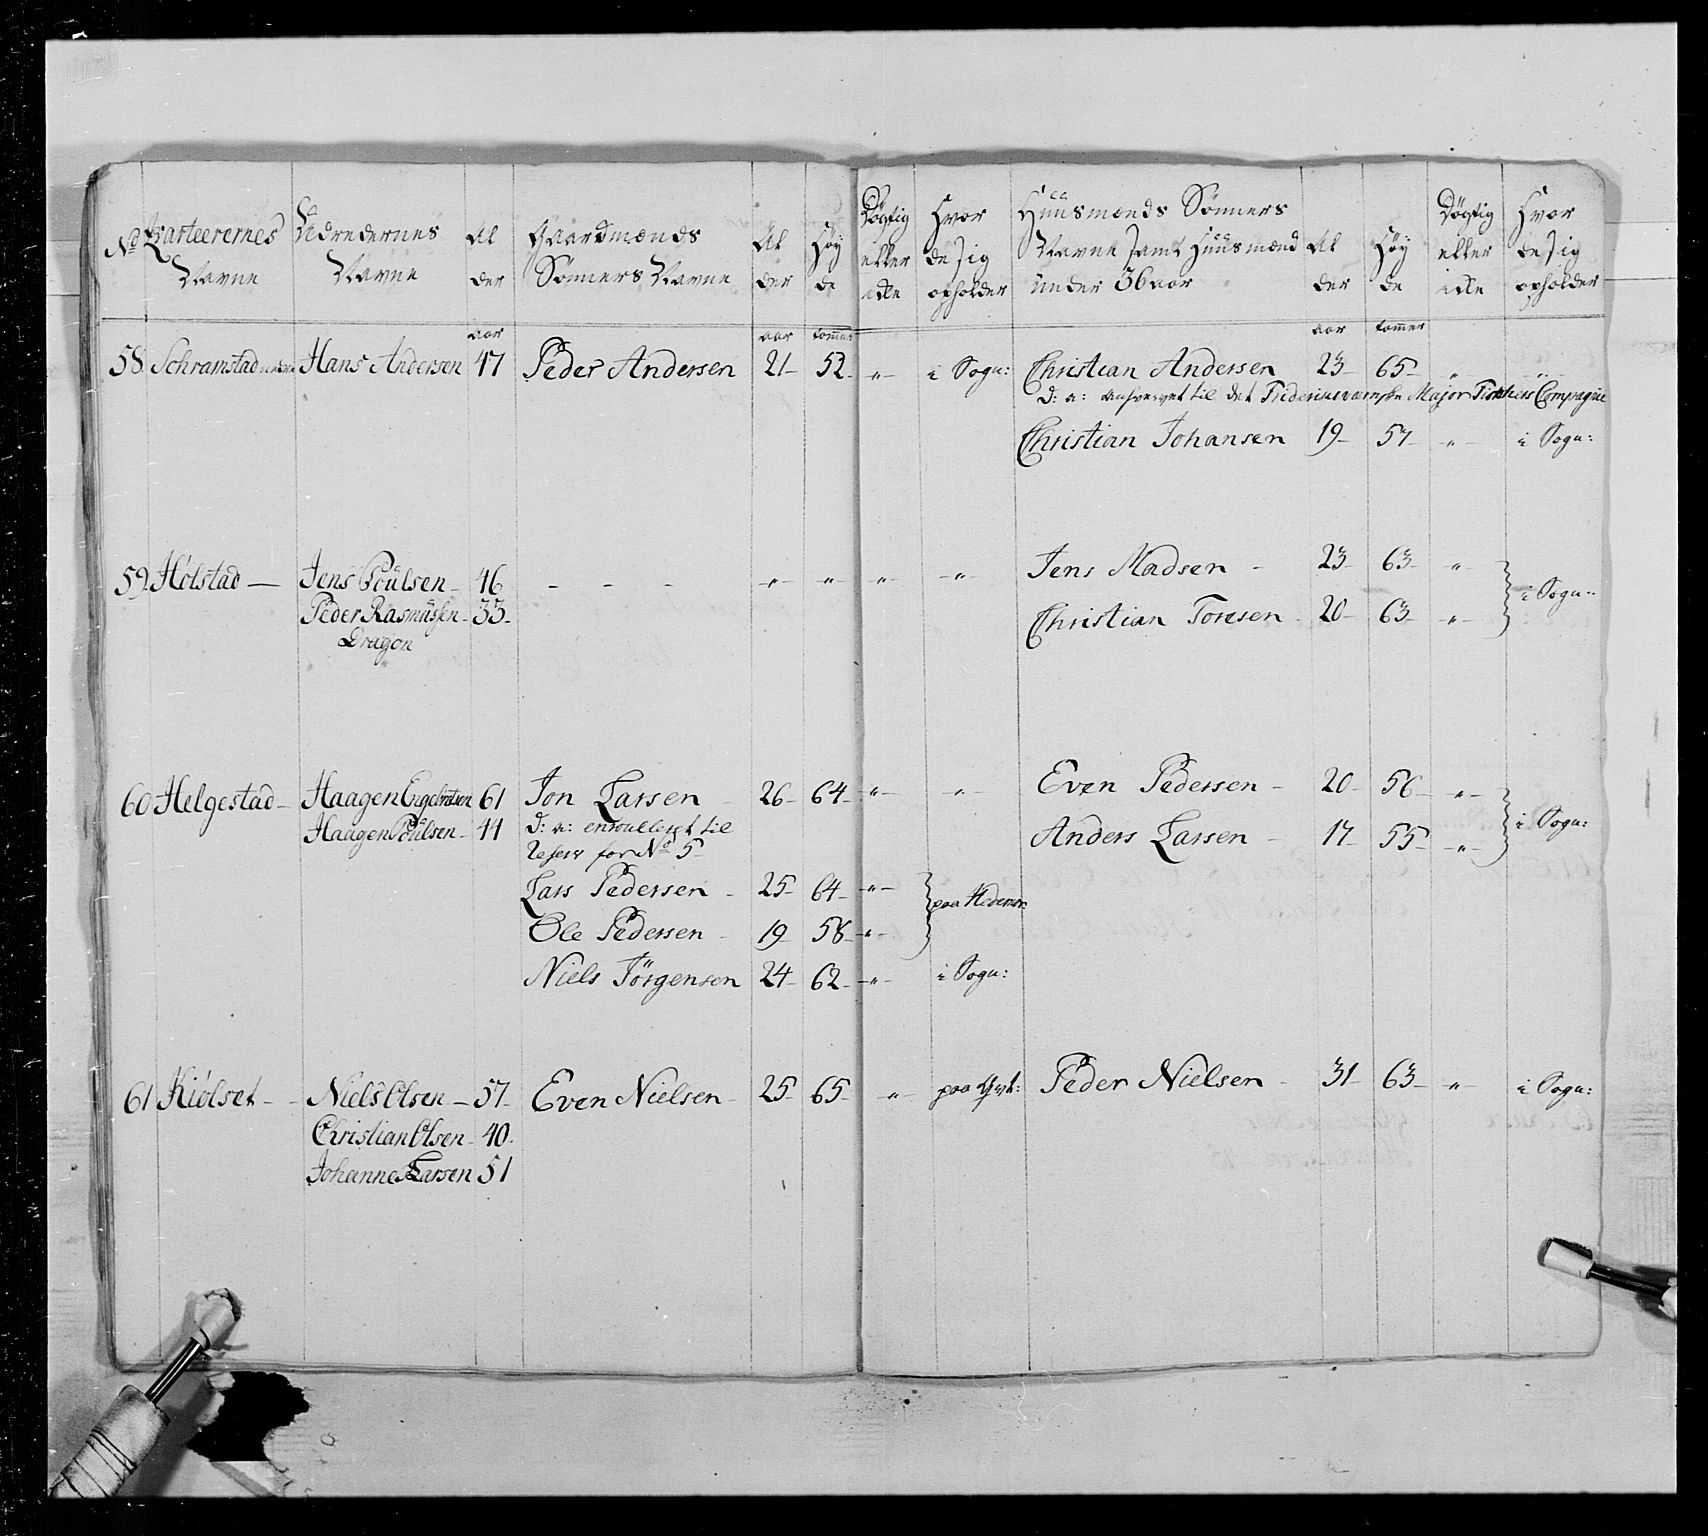 No Qvarteerernes Navne | Ledredernes Navne | Al der | Gaardmænds Sønners Navne | Al der | Høy de | Døgtig eller icke | Hvor de sig opholder | Huusmænds Sønners Navne samt Huusmænd under 36 aar | Al der | Høy de | Døgtig eller icke | Hvor de sig opholder
aar | aar | tommer | aar | tommer
58. Schramstad Hans Andersen 47 Peder Andersen 21 52 " i Sogn: Christian Andersen 23 65 " "
D: a: til det Major Compagnie
Christian Johansen 19 57 " i Sogn:
59. Holstad Jens Poulsen 46 - - - " " " " Jens Madsen 23 63 "
i Sogn:
Peder Rasmussen 33 Christian Toresen 20 63 "
Dragon
60 Helgestad Haagen Engebretsen 61 Jon Larsen 26 64 " " Even Pedersen 20 56 "
i Sogn:
Haagen Poulsen 44 D: a: enroulleret til Anders Larsen 17 55 "
Reserv for No 5
Lars Pedersen 25 64 "
paa Hedem:
Ole Pedersen 19 58 "
Niels Jörgensen 24 62 " i Sogn:
61 Kiölset Niels Olsen 57 Even Nielsen 25 65 " paa Peder Nielsen 31 63 " i Sogn:
Christian Olsen 40
Johannes Larsen 51